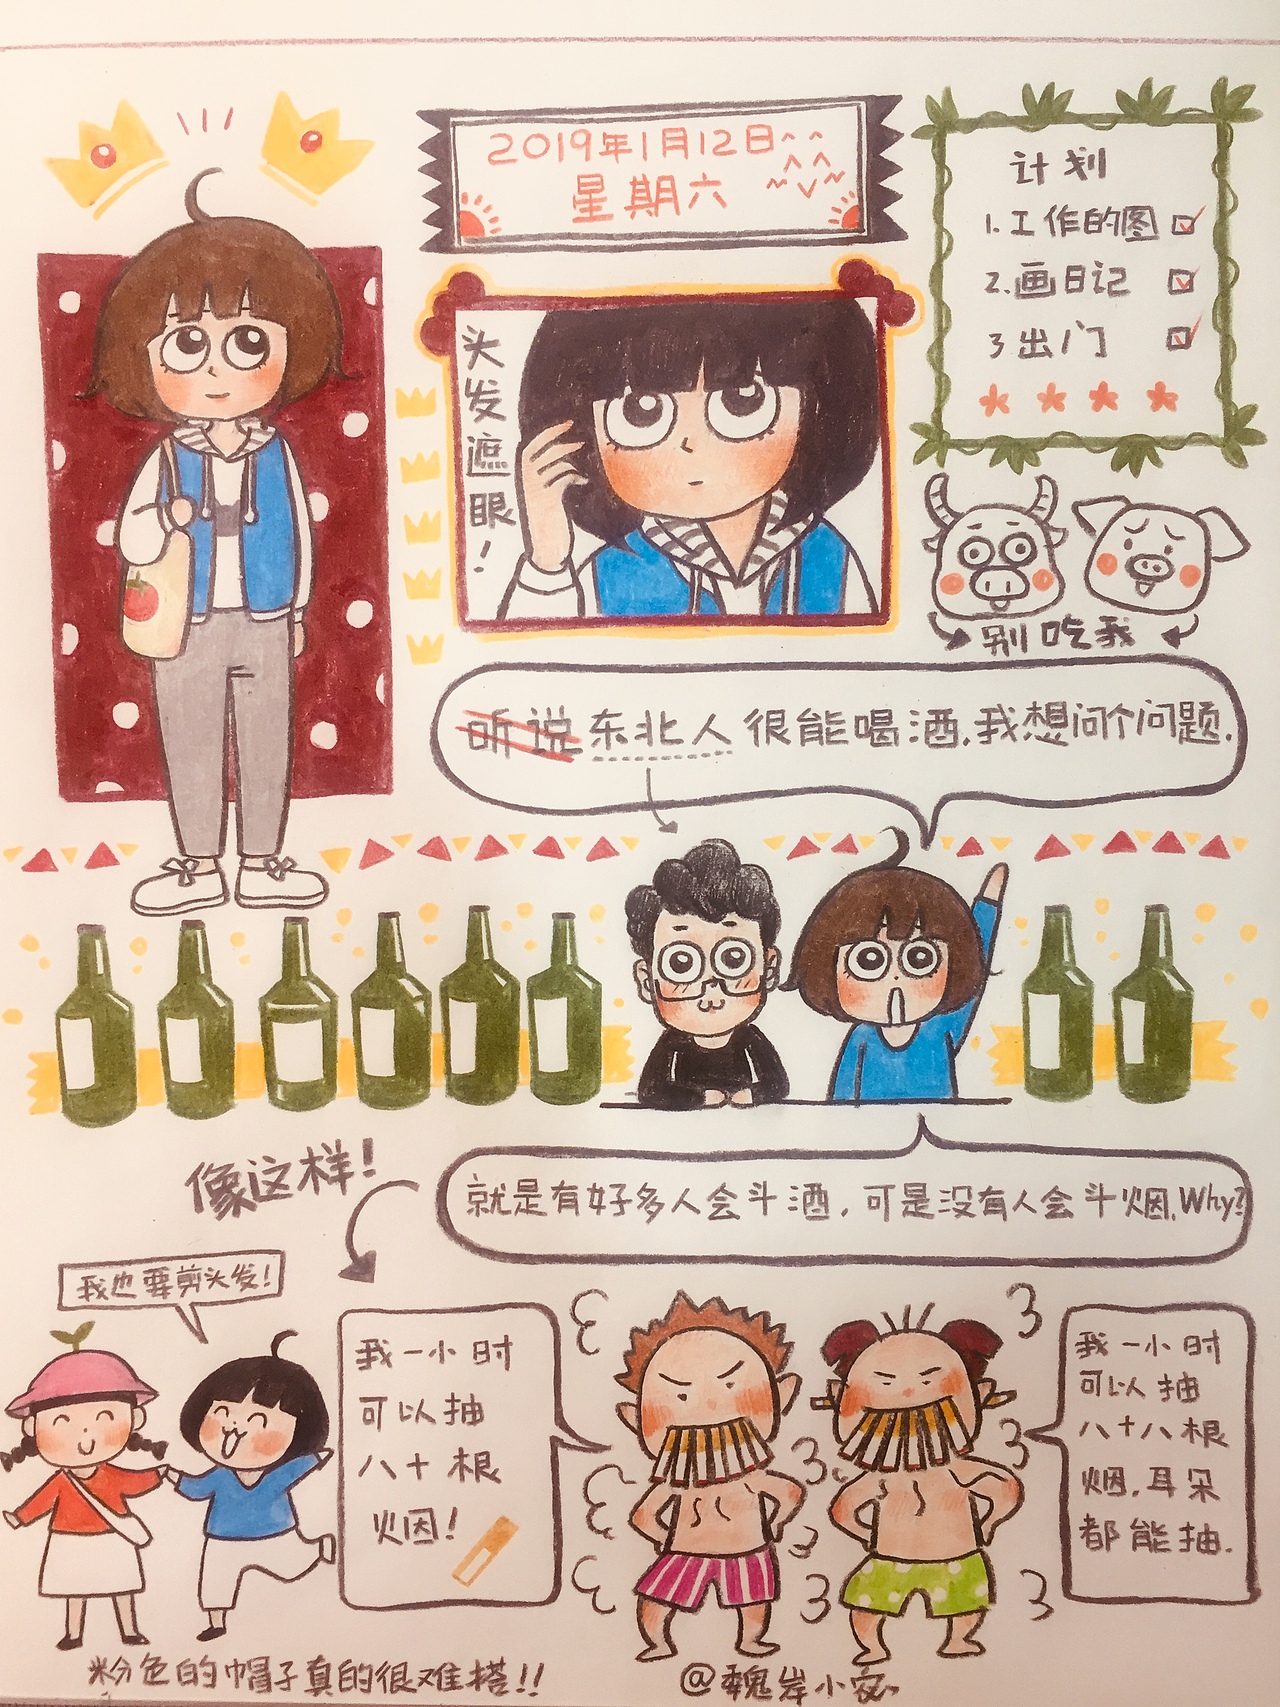 2019年1月12日
星期六
计划
1.工作的图
2.画日记
3出门
头发遮眼！
别吃我
听说东北人很能喝酒.我想问个问题.
就是有好多人会斗酒，可是没有人会斗烟.Why?
像这样！
我也要剪头发！
我一小时
可以抽
八十根
烟！
我一小时
可以抽
八十八根
烟，耳朵
都能抽.
粉色的帽子真的很难搭!!
@魏岸小